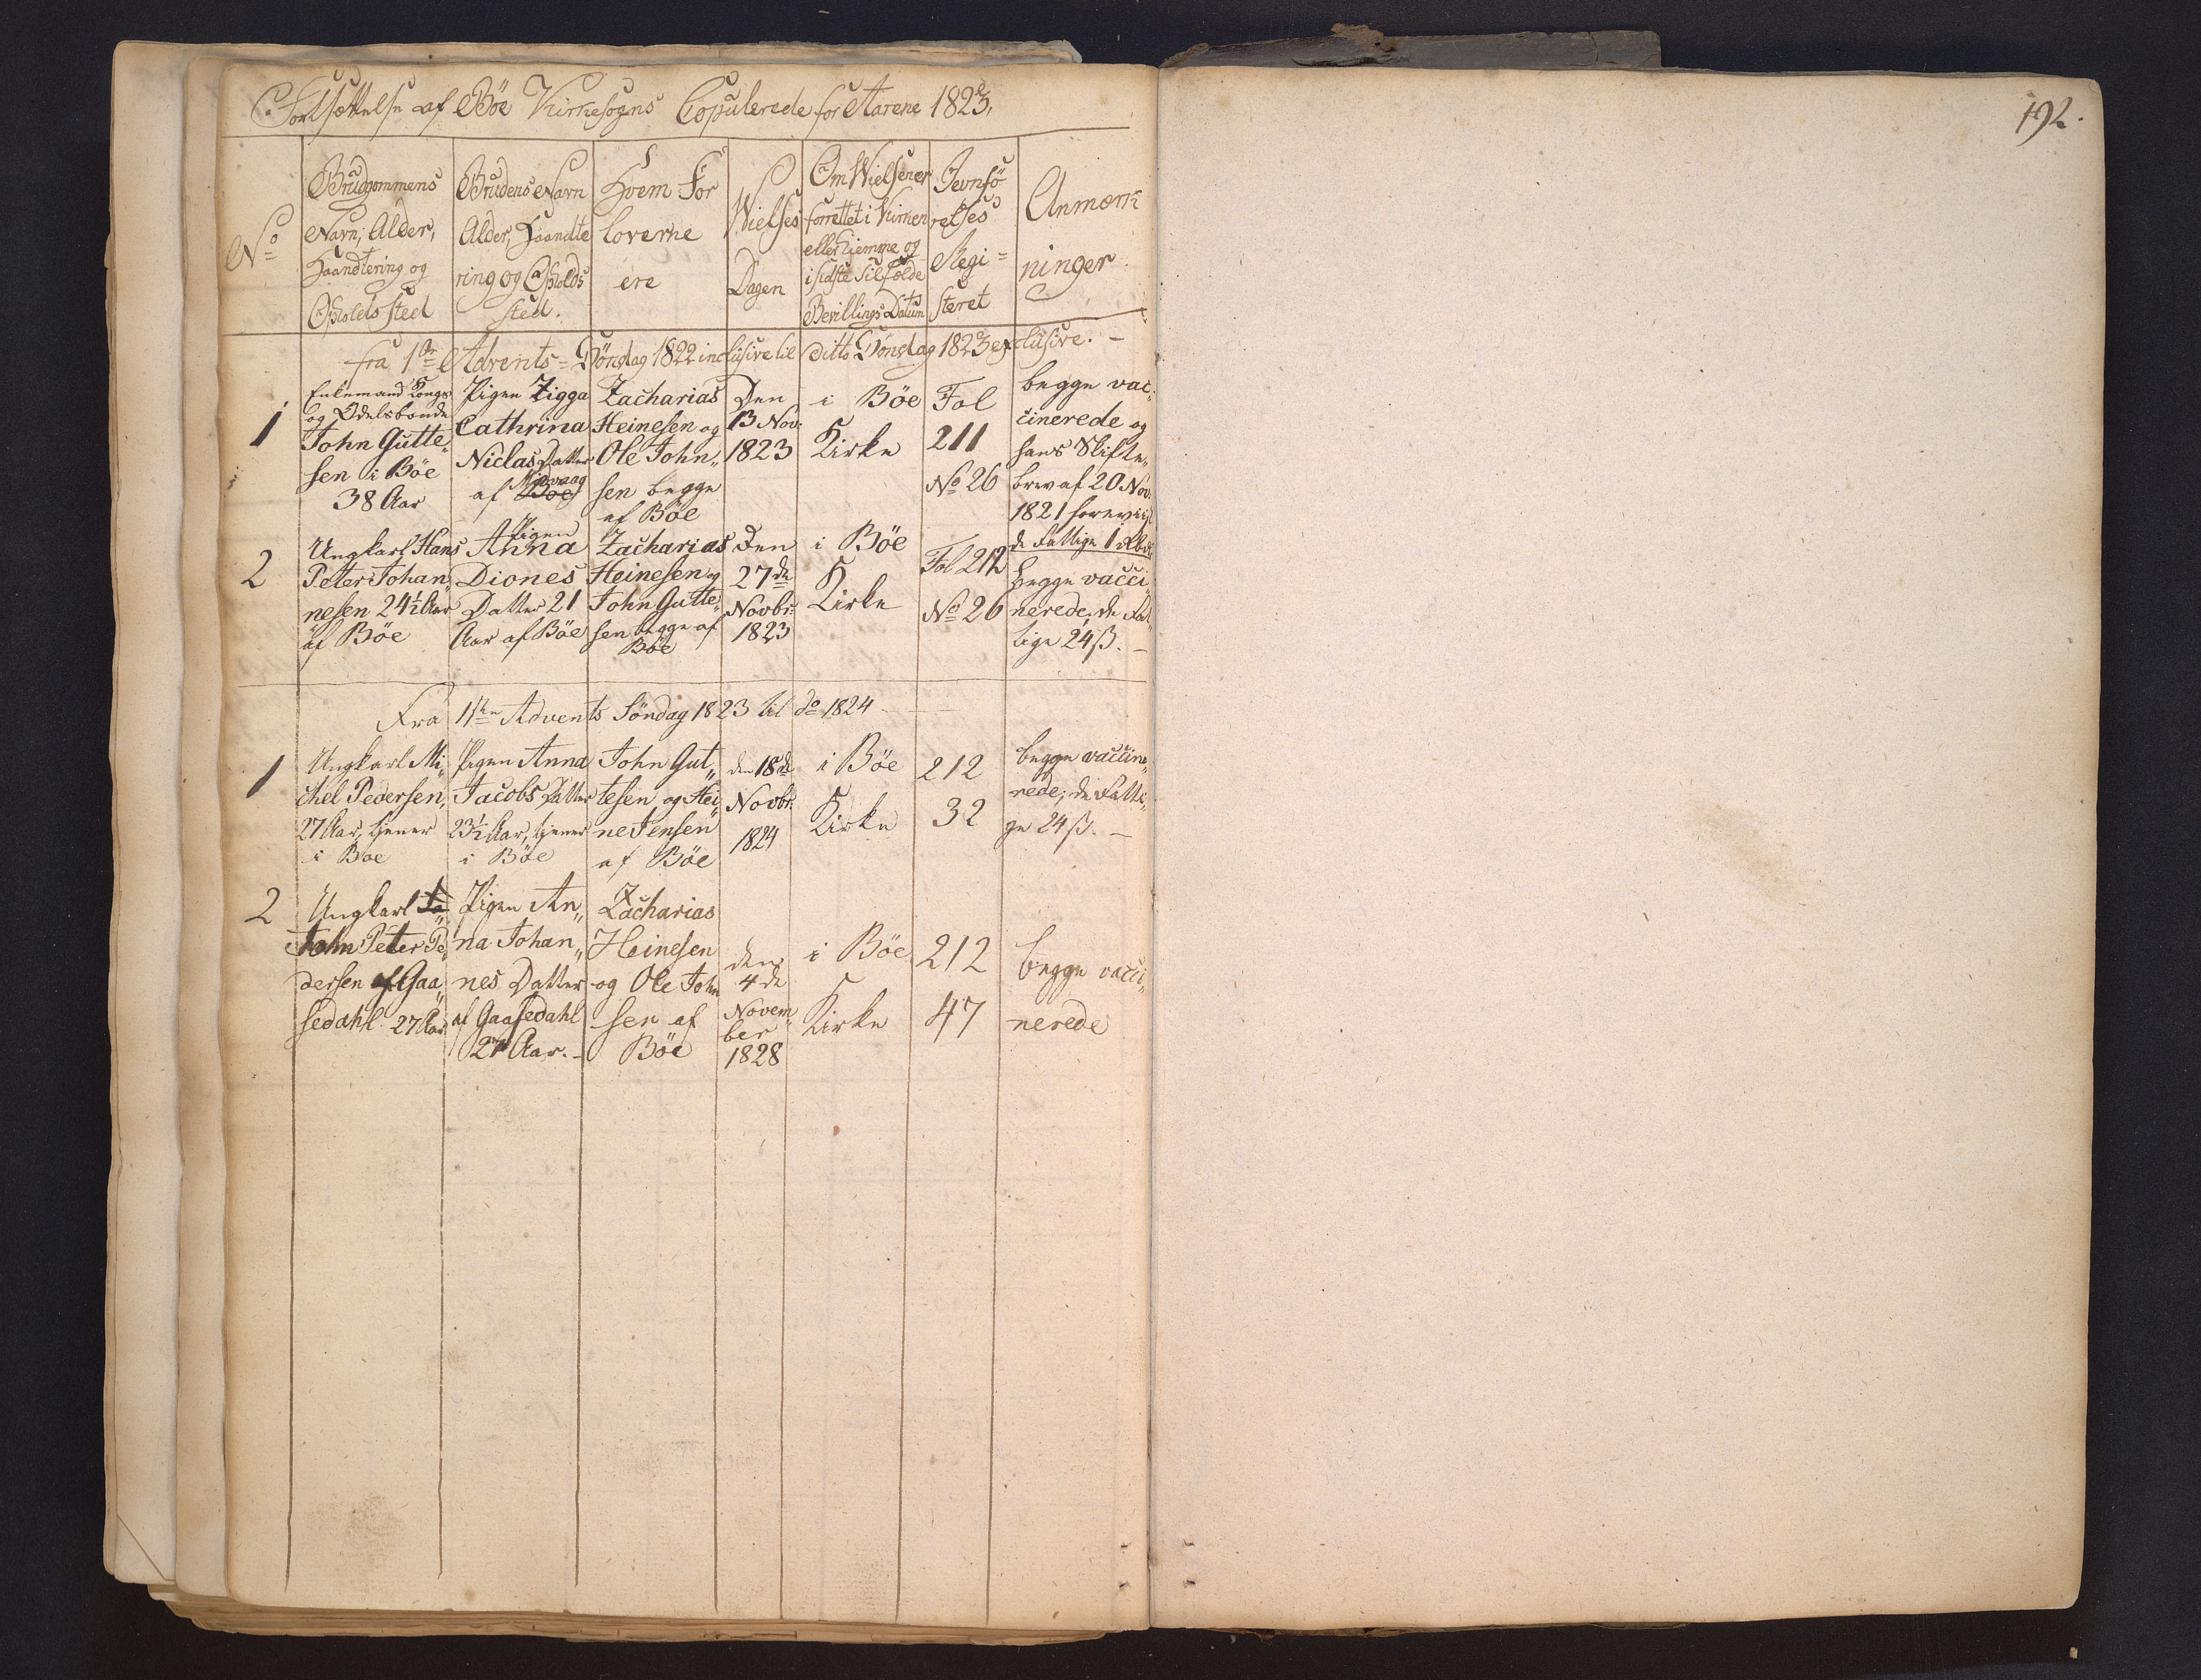 Fortsættelse af Böe Kirkesogns Copulerede for Aarene 1823,
No
Brudgommens
Navn, Alder,
Haandtering og
Opholds sted
Brudens Navn
Alder, Haandte
ring og Opholds
sted.
Hvem For
loverne
ere
Vielses
Dagen
Om Vielsen er
forrettet i Kirken
eller hiemme og
i sidste Tilfælde
Bevillings Datum
Jevnfö
relses
Regi=
steret
Anmærk
ninger
fra 1ste Advents=Söndag 1822 inclusive til ditto Söndag 1823 exclusive. –
1
Enkemand Kongs
og Odelsbonde
John Gutte„
sen i Böe
38 Aar
Pigen Zigga
Cathrina
Niclas Datter
Midvaag
af Böe
Zacharias
Heinesen og
Ole John„
sen begge
af Böe
Den
13 Nov.
1823
i Böe
Kirke
Fol
211
No 26
begge vac„
cinerede og
hans Skifte„
brev af 20 Nov.
1821 foreviist
de Fattige 1 Rbd
2
Ungkarl Hans
Peter Johan„
nesen 24½ Aar
af Böe
Pigen
Anna
Diones
Datter 21
Aar af Böe
Zacharias
Heinesen og
John Gutte„
sen begge af
Böe
Den
27de
Novbr.
1823
i Böe
Kirke
Fol 212
No 26
begge vacci
nerede, de Fat„
tige 24 ß. –
Fra 1ste Advents Söndag 1823 til do 1824
1
Ungkarl Mi„
chel Pedersen,
27 Aar, tjener
i Böe
Pigen Anna
Jacobs Datter
23½ Aar, tjener
i Böe
John Gut„
tesen og Hei„
ne Jensen
af Böe
den 18de
Novbr.
1824
i Böe
Kirke
212
32
begge vaccine„
rede; de Fatti„
ge 24 ß. –
2
Ungkarl Jo„
John Peter Pe„
dersen af Gaa„
sedahl 27 Aar
Pigen An„
na Johan„
nes Datter
af Gaasedahl
27 Aar. –
Zacharias
Heinesen
og Ole John
sen af
Böe
den
4de
Novem„
ber
1828
i Böe
Kirke
212
47
begge vacci„
nerede
192.